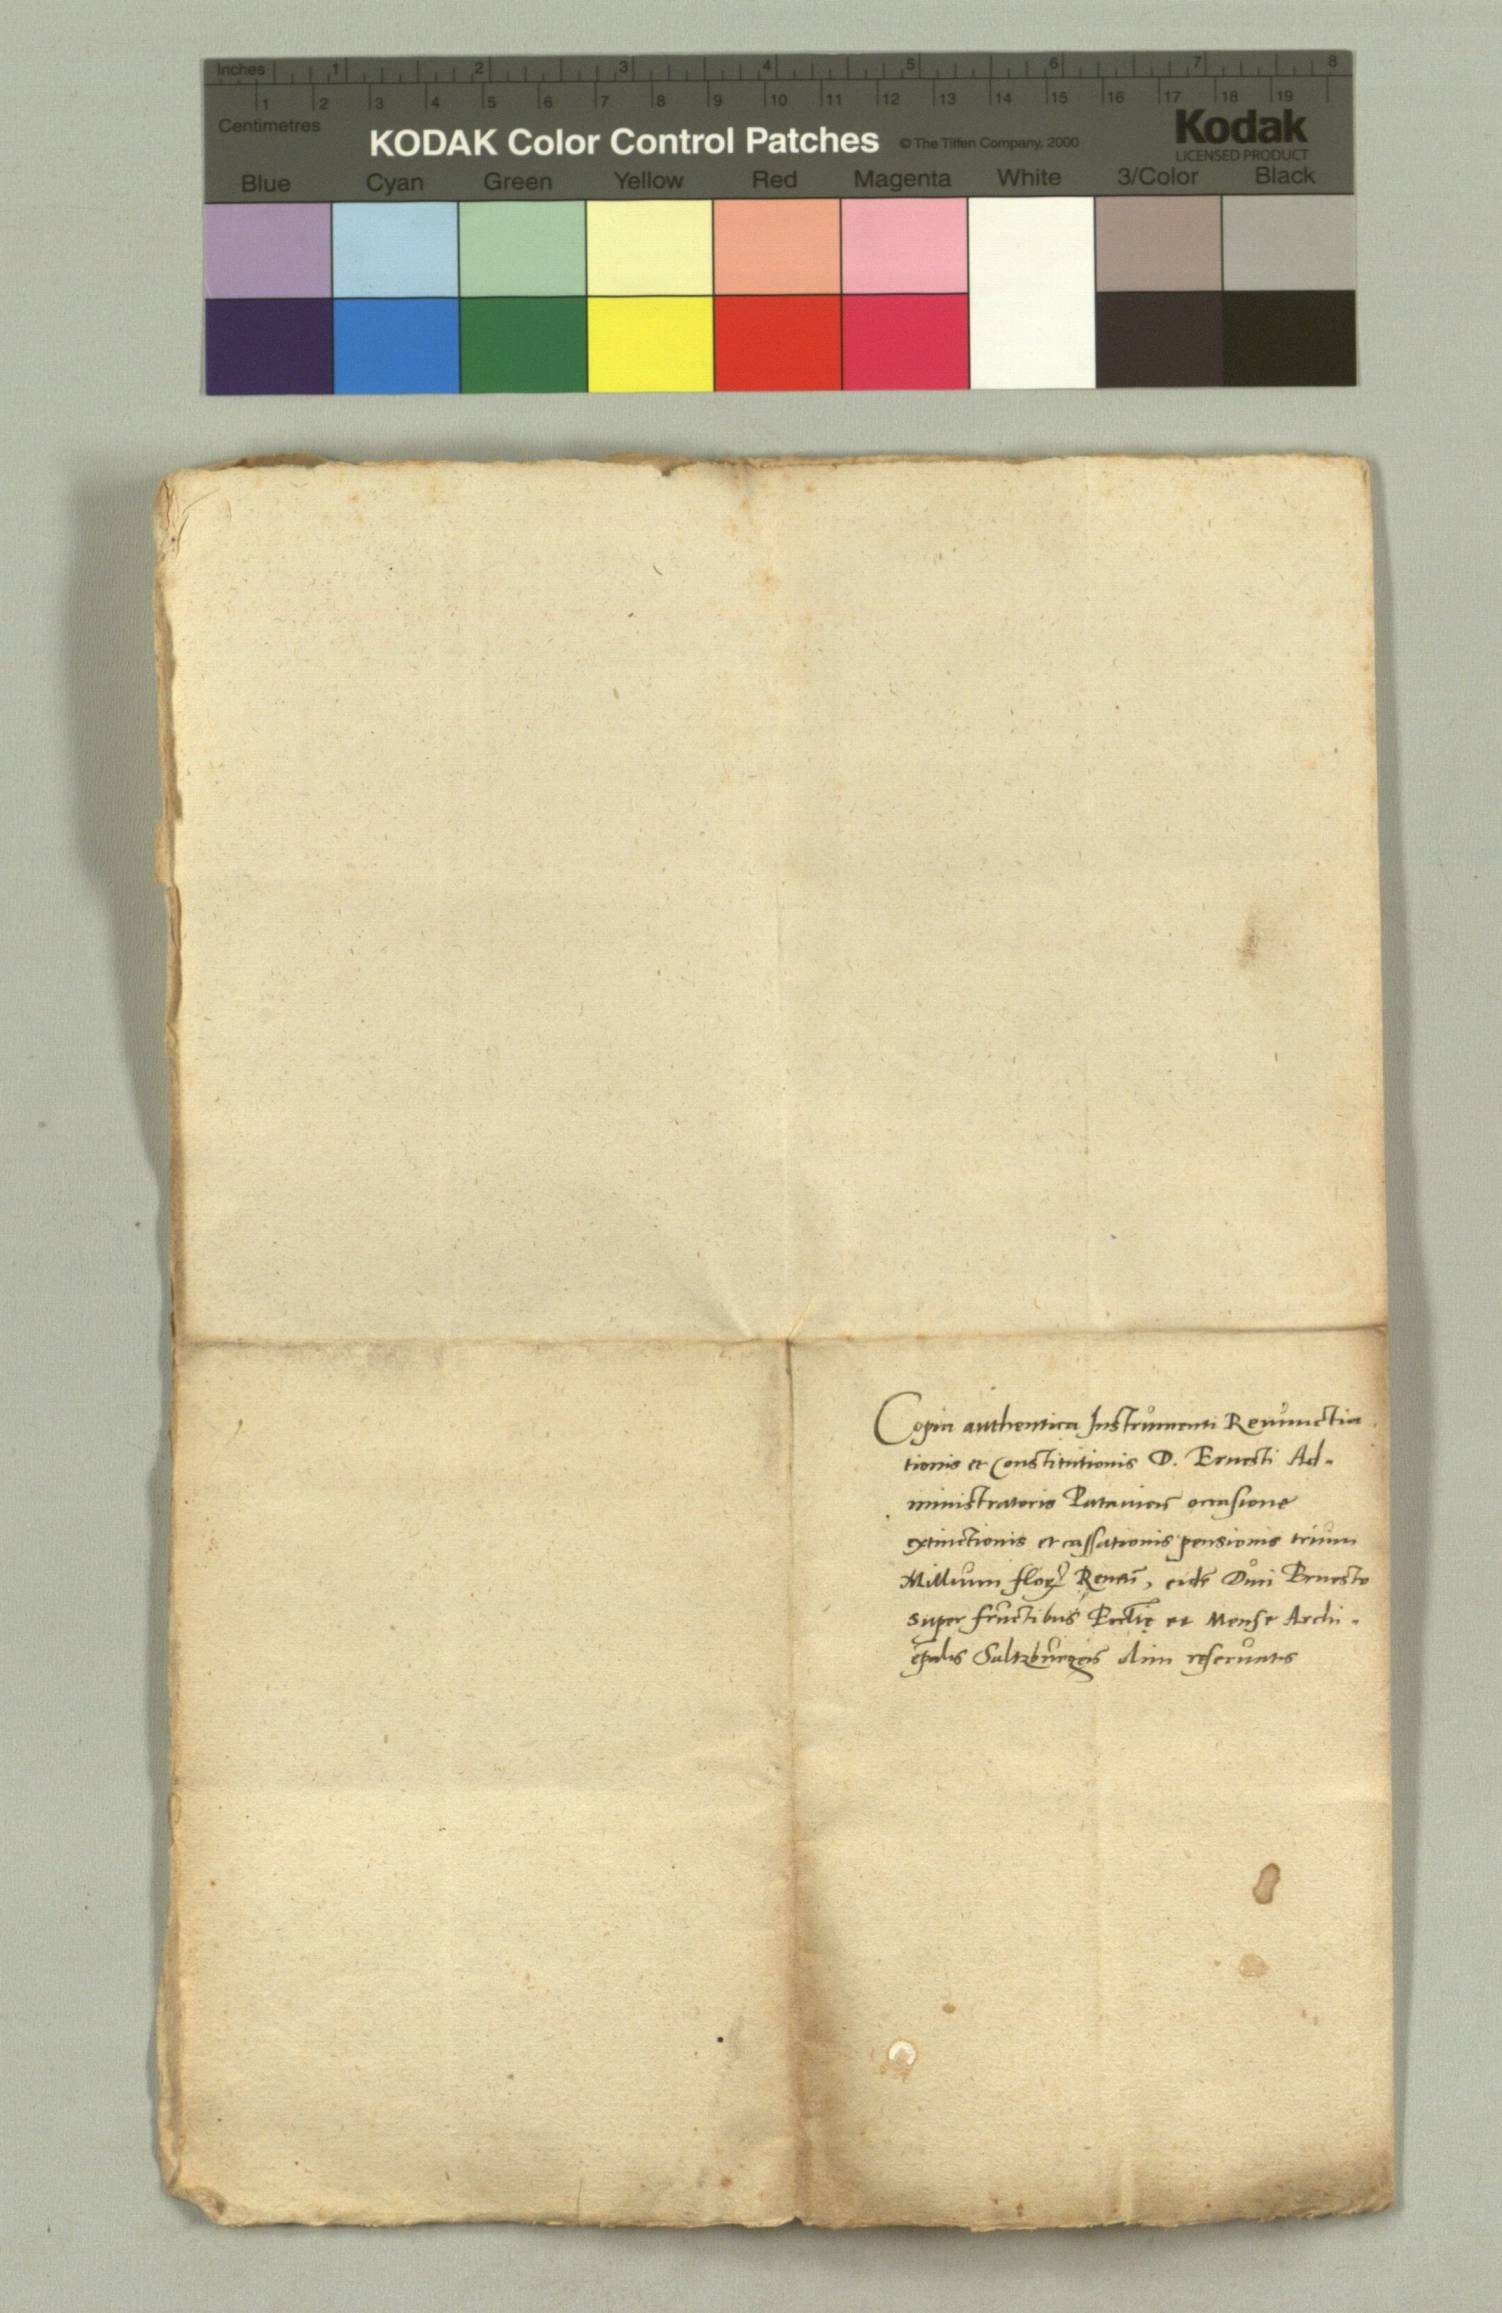 Inches 1 2 3 4 5 6 7 8
1 2 3 4 5 6 7 8 9 10 11 12 13 14 15 16 17 18 19
Centimetres
KODAK Color Control Patches © The Tiffen Company, 2000 Kodak
LICENSED PRODUCT
Blue Cyan Green Yellow Red Magenta White 3/Color Black
Copia authentica Instrumenti Renunctia
tionis et Constitutionis D. Ernesti Ad-
ministratoris Patavien occasione
extinctionis et cassationis pensionis trium
Millium flor Renen, eidē Dni Ernesto
super fructibus Ecclię et Mensę Archi-
epalis Saltzburgen olim reservatis